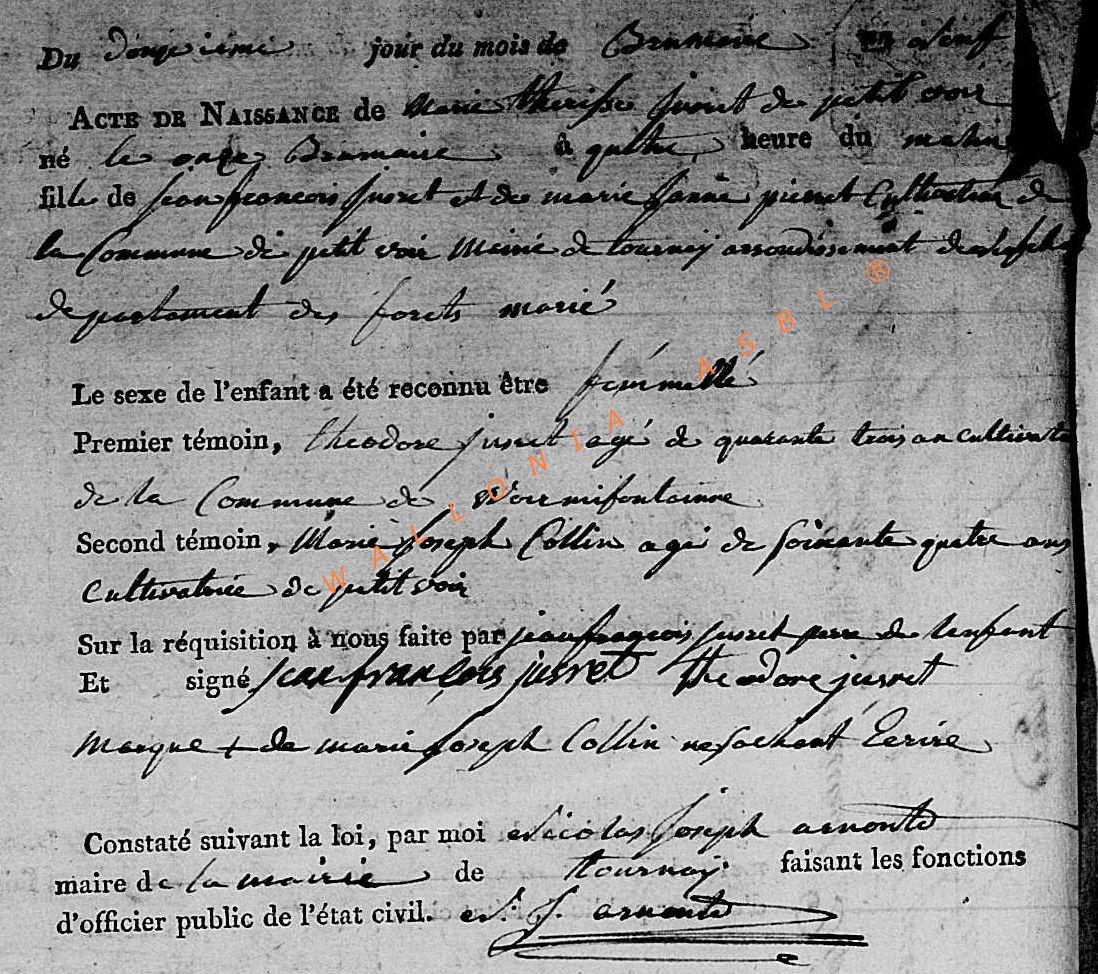 Du douzieme jour du mois de Brumaire an Neuf
ACTE DE NAISSANCE de Marie therese jusret de petit voir
né le onze Brumaire à quatre heure du matin
fille de jean francois jusret et de marie janne pierret Cultivateur de
la Commune de petit voir Mairie de tournay arrondissement de
departament des forets marié
Le sexe de l'enfant a été reconnu être fémmelle
Premier témoin, theodore jusret agé de quarante trois an cultivate
de la Commune de Warmifontainne
Second témoin, Marie Joseph Collin agé de soixante quatre ans
Cultivatrice de petit voir
Sur la réquisition à nous faite par jean françois jusret pere de lenfant
Et signé jean françois jusret theodore jusret
Marque + de marie joseph Collin ne sachant Ecrire
Constaté suivant la loi, par moi Nicolas Joseph arnould
maire de la mairie de tournay faisant les fonctions
d'officier public de l'état civil. N. J. arnould
WALLONIA ASBL ®